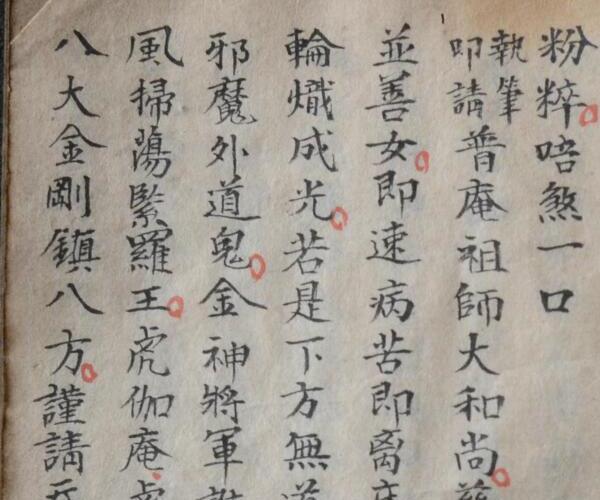 粉粹唔煞一口
執筆
叩請普庵祖師大和尚
並善女即速病苦即离
輪熾成光若是下方無道
邪魔外道鬼金神將軍
風掃蕩緊羅王虎伽庵
八大金剛鎮八方謹請